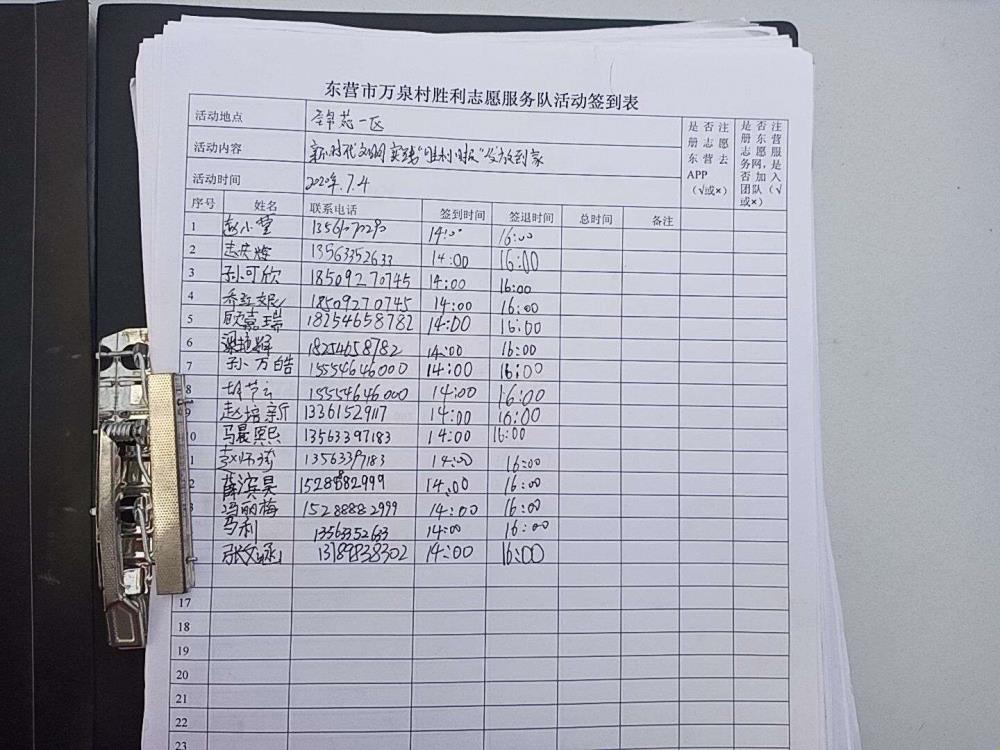 东营市万泉村胜利志愿服务队活动签到表
活动地点 一区
活动内容 新时代文明实践"胜利小报"发放到家
活动时间 2020年.7.4
是否注册志愿东营去APP（√或×）
是否注册东营志愿服务网，是否加入团队（√或×）
序号 姓名 联系电话 签到时间 签退时间 总时间 备注
1 赵小 14:00 16:00
2 13563352633 14:00 16:00
3 孙可欣 18509270745 14:00 16:00
4 18509270745 14:00 16:00
5 嘉瑞 18254658782 14:00 16:00
6 18254658782 14:00 16:00
7 孙万皓 15554646000 14:00 16:00
8 15554646000 14:00 16:00
9 赵培新 13361529117 14:00 16:00
0 马晨熙 13563397183 14:00 16:00
1 13563397183 14:00 16:00
2 薛滨昊 15288882999 14:00 16:00
3 冯丽梅 15288882999 14:00 16:00
马利 13563352633 14:00 16:00
张文涵 13189838302 14:00 16:00
17
18
19
20
21
22
23